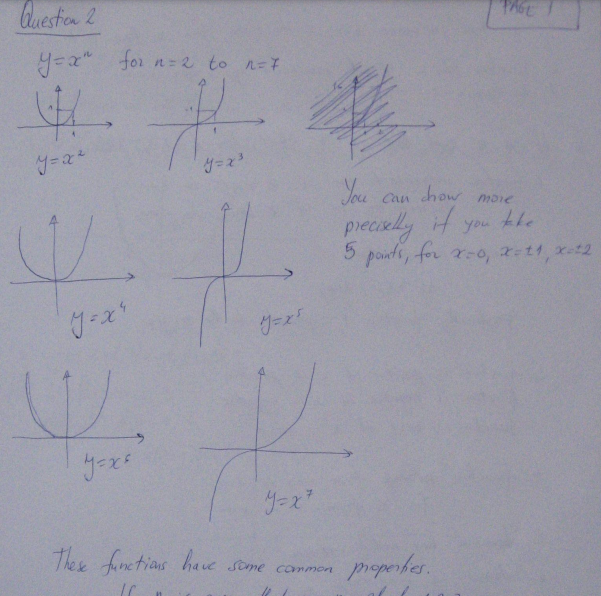 Question 2
PAGE 1
y=xⁿ for n=2 to n=7
y=x²
y=x³
You can draw more
preciselly if you take
5 points, for x=0, x=±1, x=±2
y=x⁴
y=x⁵
y=x⁶
y=x⁷
These functions have some common properties.